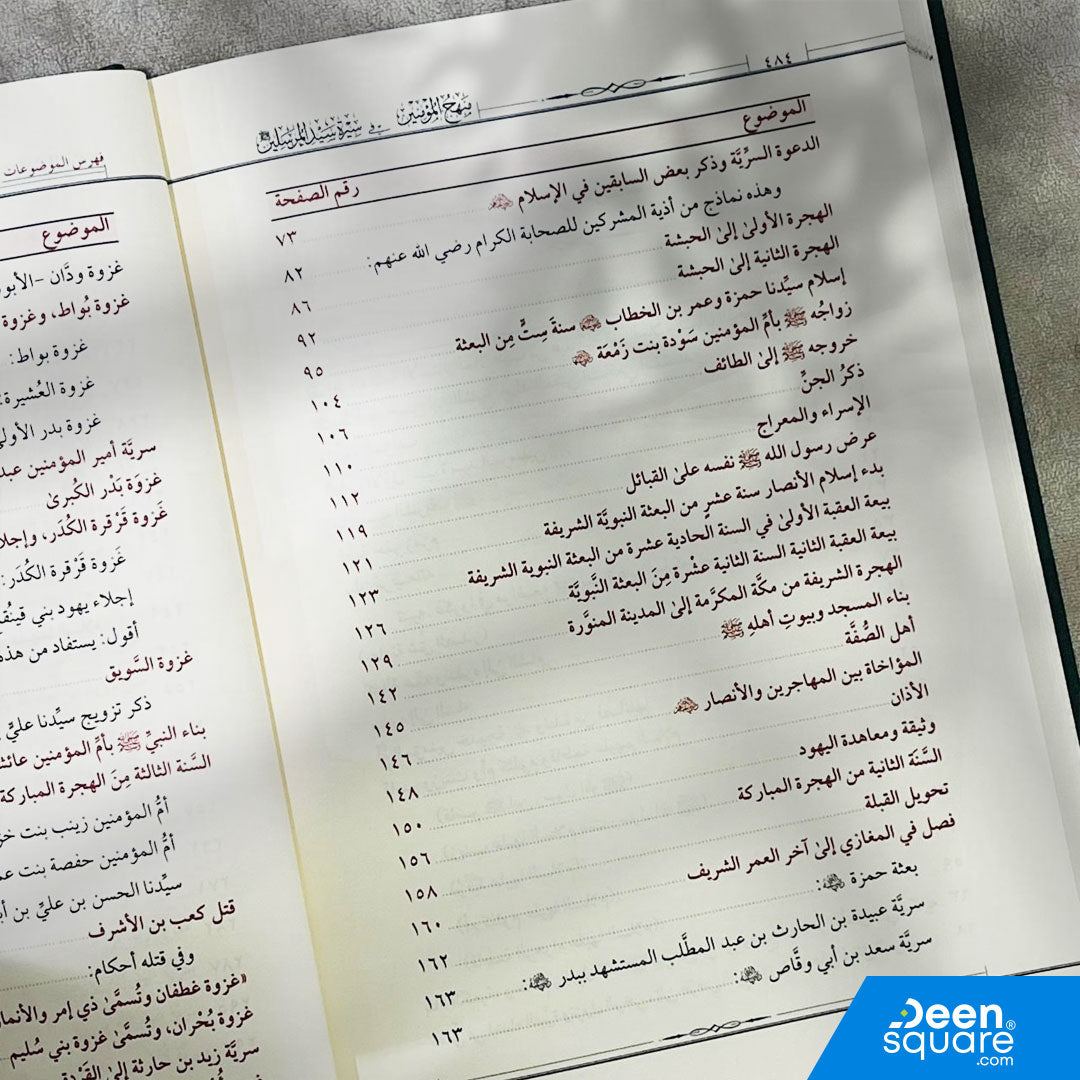 ٤٨٤
منهج المؤمنين في سيرة سيد المرسلين ﷺ
الموضوع رقم الصفحة
الدعوة السرِّيَّة وذكر بعض السابقين في الإسلام ٧٣
وهذه نماذج من أذية المشركين للصحابة الكرام رضي الله عنهم: ٨٢
الهجرة الأولىٰ إلىٰ الحبشة ٨٦
الهجرة الثانية إلىٰ الحبشة ٩٢
إسلام سيِّدنا حمزة وعمر بن الخطاب سنةَ سِتٍّ مِن البعثة ٩٥
زواجُه ﷺ بأمِّ المؤمنين سَوْدة بنت زَمْعَة ١٠٤
خروجه ﷺ إلىٰ الطائف ١٠٦
ذكرُ الجنِّ ١١٠
الإسراء والمعراج ١١٢
عرض رسول الله ﷺ نفسه علىٰ القبائل ١١٩
بدء إسلام الأنصار سنة عشرٍ من البعثة النبويَّة الشريفة ١٢١
بيعة العقبة الأولىٰ في السنة الحادية عشرة من البعثة النبوية الشريفة ١٢٣
بيعة العقبة الثانية السنة الثانية عشْرة مِنَ البعثة النَّبويَّة ١٢٦
الهجرة الشريفة من مكَّة المكرَّمة إلىٰ المدينة المنوَّرة ١٢٩
بناء المسجد وبيوتِ أهلهِ ﷺ ١٤٢
أهل الصُّفَّة ١٤٥
المؤاخاة بين المهاجرين والأنصار ١٤٦
الأذان ١٤٨
وثيقة ومعاهدة اليهود ١٥٠
السَّنَة الثانية من الهجرة المباركة ١٥٦
تحويل القبلة ١٥٨
فصل في المغازي إلىٰ آخر العمر الشريف ١٦٠
بعثة حمزة : ١٦٢
سريَّة عبيدة بن الحارث بن عبد المطَّلب المستشهد ببدر : ١٦٣
سريَّة سعد بن أبي وقَّاص : ١٦٣
فهرس الموضوعات
الموضوع
غزوة ودَّان -الأبو
غزوة بُواط، وغزوة
غزوة بواط:
غزوة العُشيرة:
غزوة بدر الأولىٰ
سريَّة أمير المؤمنين عبد
غزوَة بَدْر الكُبرىٰ
غَزوة قَرْقرة الكُدَر، وإجلا
غَزوة قَرْقرة الكُدَر:
إجلاء يهود بني قينُق
أقول: يستفاد من هذه
غزوة السَّويق
ذكر تزويج سيِّدنا عليٍّ
بناء النبيِّ ﷺ بأمِّ المؤمنين عائش
السَّنة الثالثة مِنَ الهجرة المباركة
أمُّ المؤمنين زينب بنت خز
أمُّ المؤمنين حفصة بنت عم
سيِّدنا الحسن بن عليِّ بن أب
قتل كعب بن الأشرف
وفي قتله أحكام:
«غزوة غطفان وتُسمَّىٰ ذي إمر والأنما
غزوة بُحْران، وتُسمَّىٰ غزوة بني سُليم
سريَّة زيد بن حارثة إلىٰ القَرْدة
Deen
square®
.com